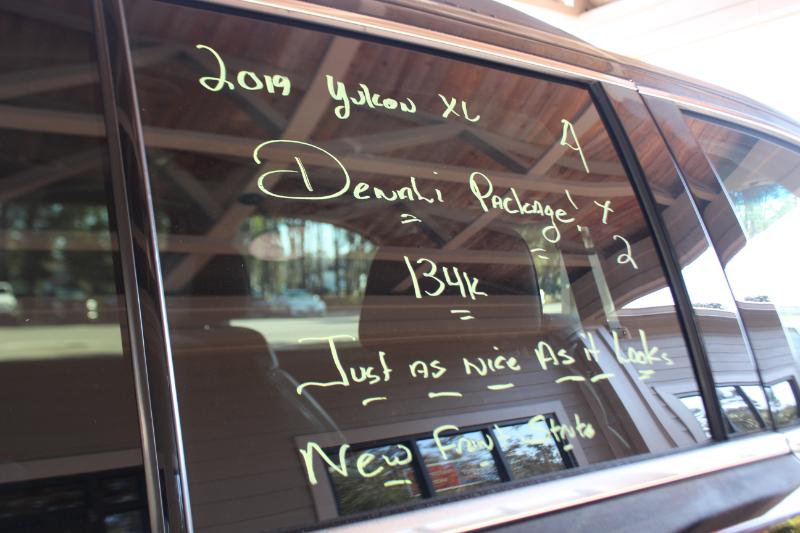 2019 Yukon XL
Denali Package!
4
x
2
134k
Just as Nice As it Looks
New Front Struts